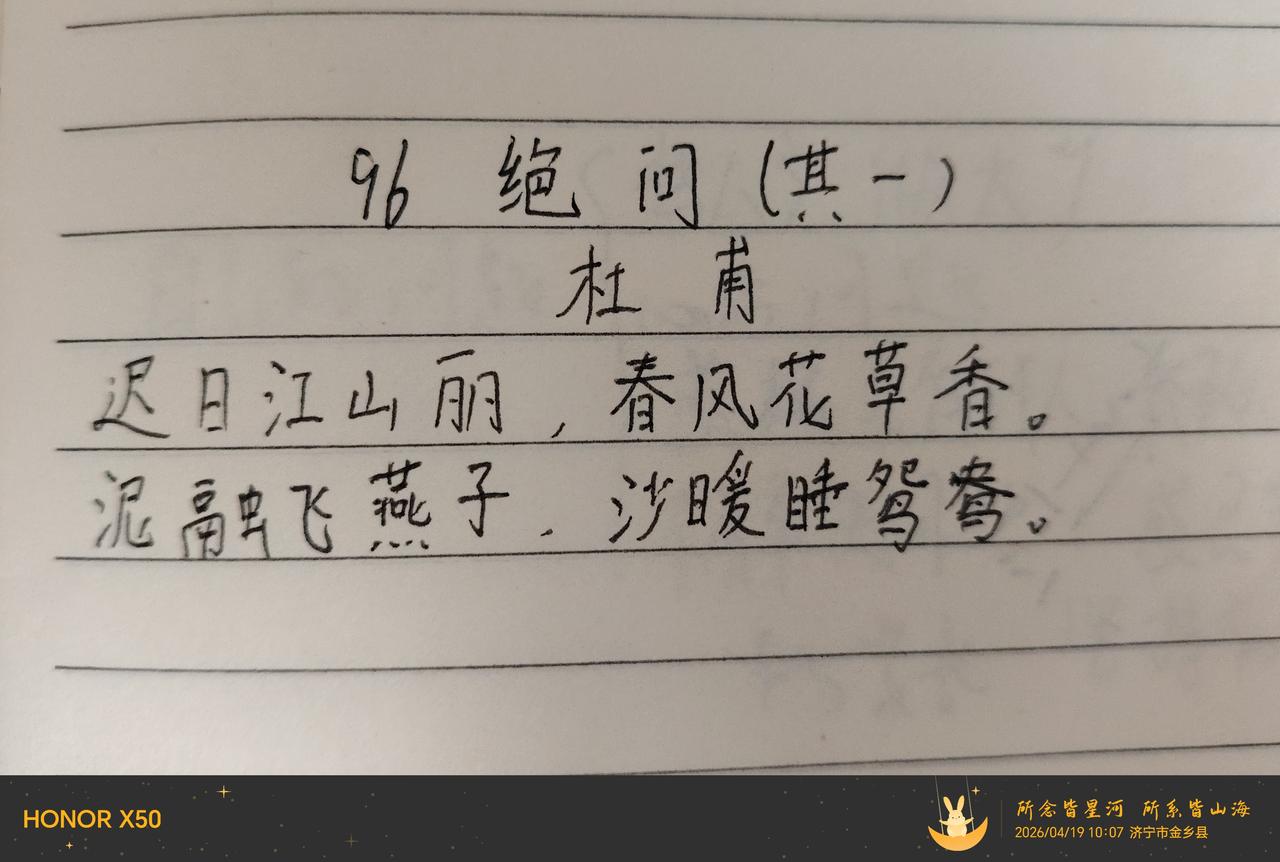 96 绝问(其一)
杜甫
迟日江山丽,春风花草香。
泥融飞燕子,沙暖睡鸳鸯。
HONOR X50
所念皆星河 所系皆山海
2026/04/19 10:07 济宁市金乡县